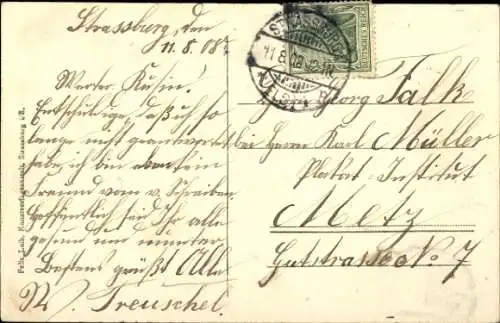 Strassburg, den
11.8.08.
Werter Kusin.
Entschuldige, daß ich so
lange nicht geantwortet
habe, ich bin aber kein
Freund vom v. Schreiben.
Hoffentlich seid Ihr alle
gesund und munter.
Bestens grüßt Alle
N. Treuschel.
STRASSBURG
11.8.08
Georg Falk
bei Herrn Karl Müller
Plakat-Institut
Metz
Gutstrasse No. 7
Felix Luib, Kunstverlagsanstalt, Strassburg i/E.